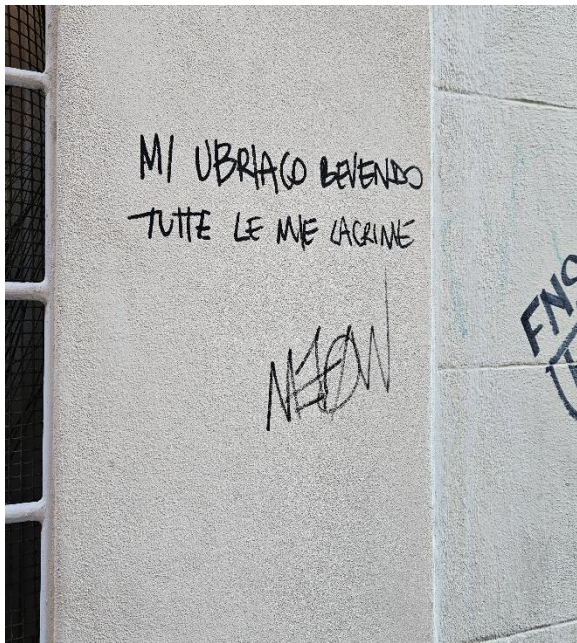 MI UBRIACO BEVENDO
TUTTE LE MIE LACRIME